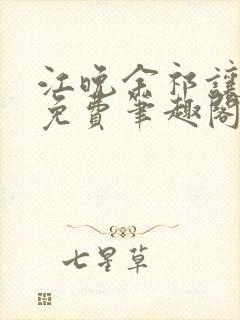 江晚余祁让
免费笔趣阁
七星草